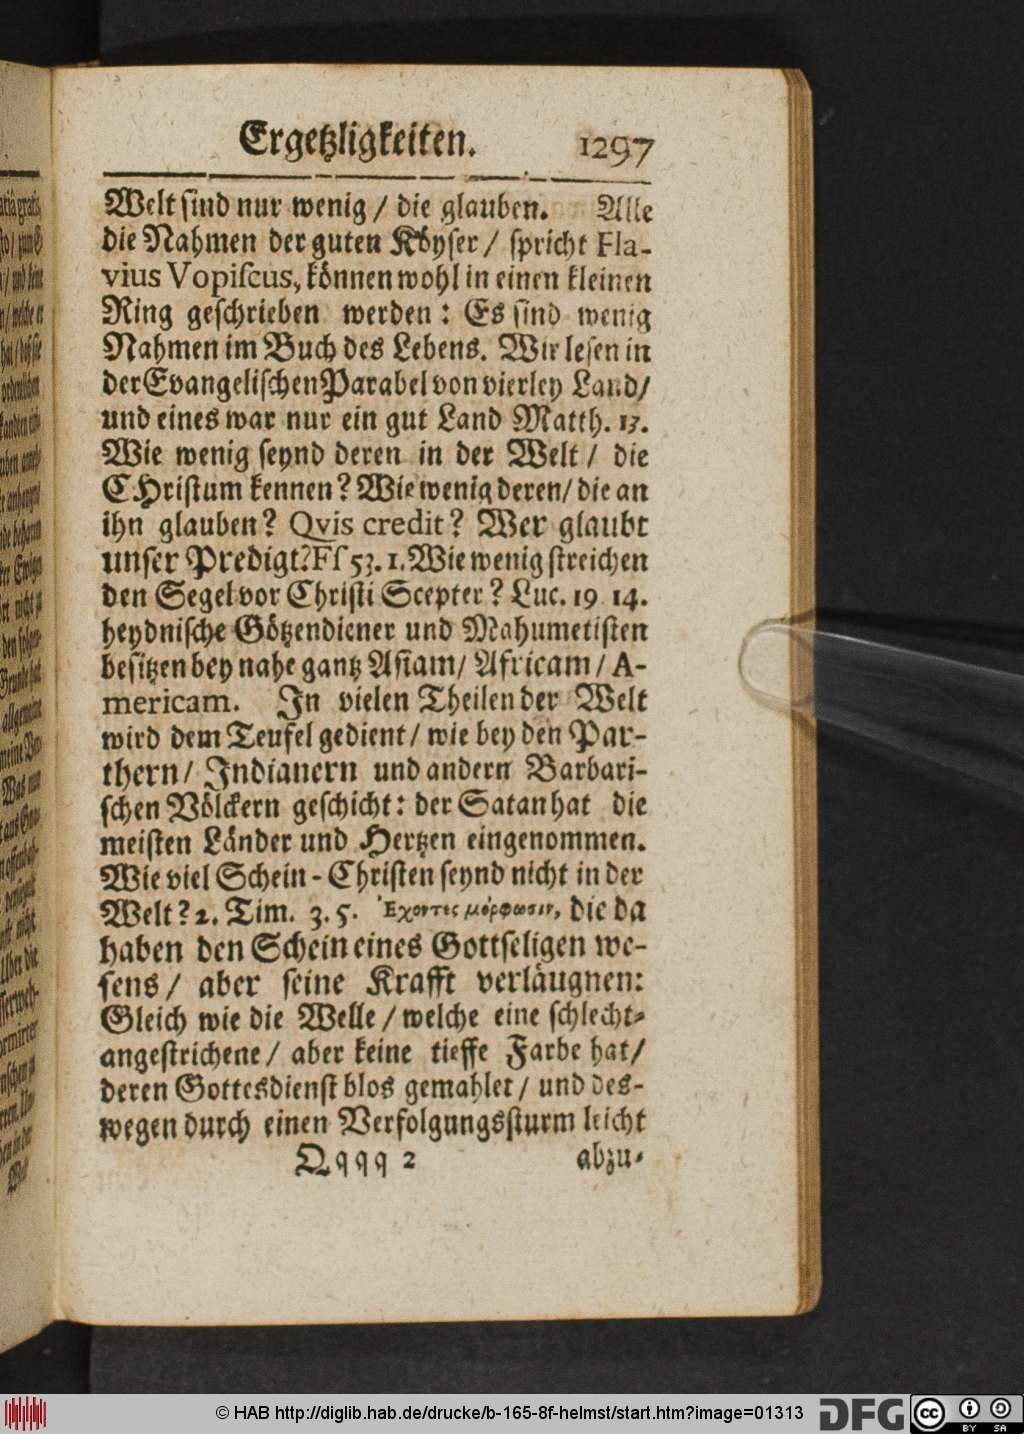 Ergetzligkeiten. 1297
Welt sind nur wenig / die glauben. Alle
die Nahmen der guten Käyser / spricht Fla-
vius Vopiſcus, können wohl in einen kleinen
Ring geschrieben werden: Es sind wenig
Nahmen im Buch des Lebens. Wir lesen in
der Evangelischen Parabel von vierley Land /
und eines war nur ein gut Land Matth. 13.
Wie wenig seynd deren in der Welt / die
CHristum kennen? Wie wenig deren / die an
ihn glauben? Qvis credit? Wer glaubt
unser Predigt? Eſ 53. 1. Wie wenig streichen
den Segel vor Christi Scepter? Luc. 19 14.
heydnische Götzendiener und Mahumetisten
besitzen bey nahe gantz Asiam / Africam / A-
mericam. In vielen Theilen der Welt
wird dem Teufel gedient / wie bey den Par-
thern / Indianern und andern Barbari-
schen Völckern geschicht: der Satan hat die
meisten Länder und Hertzen eingenommen.
Wie viel Schein-Christen seynd nicht in der
Welt? 2. Tim. 3. 5. Ἔχοντες μόρφωσιν, die da
haben den Schein eines Gottseligen we-
sens / aber seine Krafft verläugnen:
Gleich wie die Welle / welche eine schlecht-
angestrichene / aber keine tieffe Farbe hat /
deren Gottesdienst blos gemahlet / und des-
wegen durch einen Verfolgungssturm leicht
Qqqq 2 abzu-
© HAB http://diglib.hab.de/drucke/b-165-8f-helmst/start.htm?image=01313 DFG cc BY SA